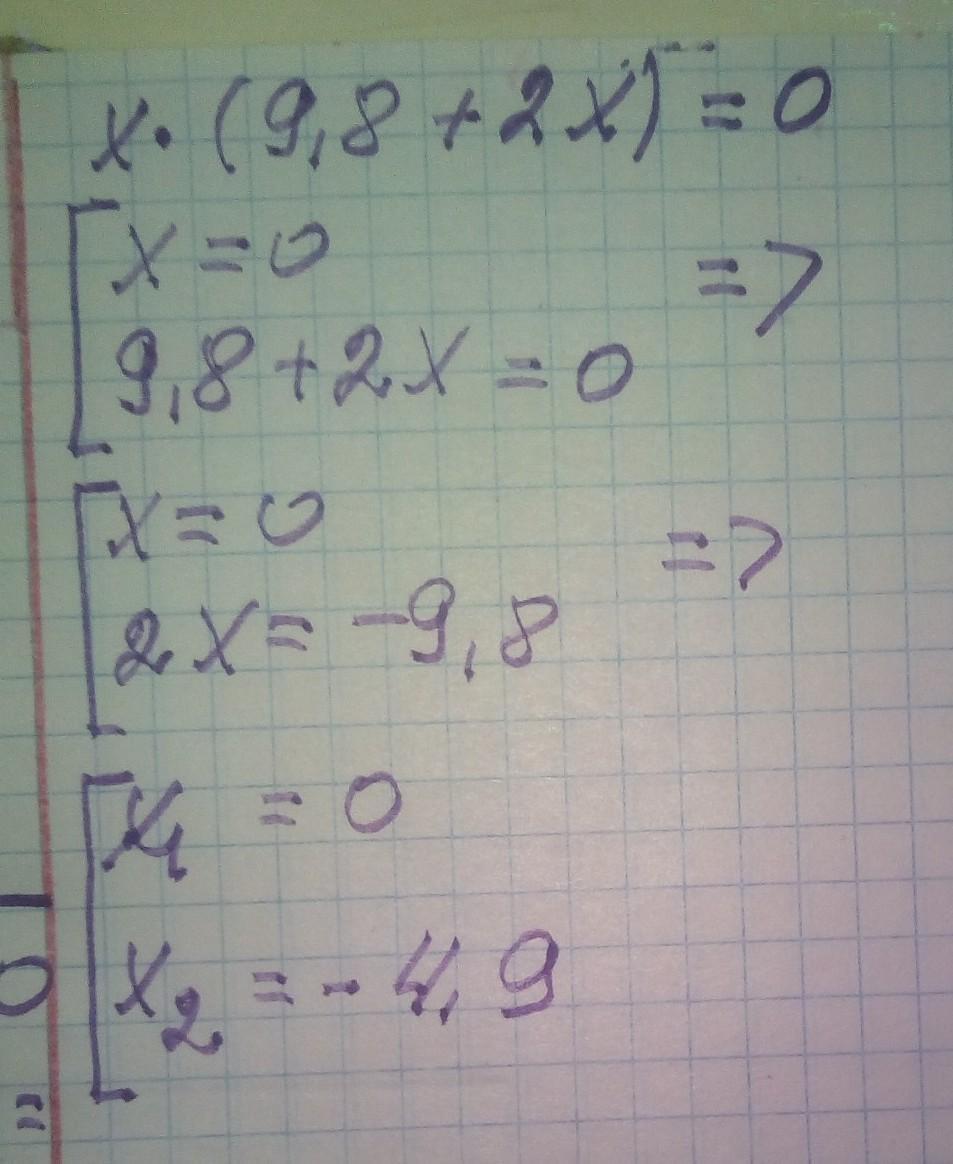 x·(9,8+2x)=0
[x=0
9,8+2x=0 =>
[x=0
2x=-9,8 =>
[x₁ =0
x₂ =-4,9
0
=